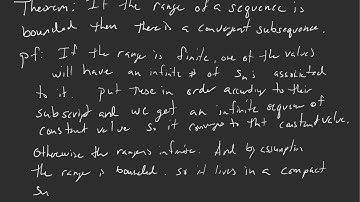 Theorem: If the range of a sequence is
bounded then there is a convergent subsequence.
pf: If the range is finite, one of the values
will have an infinite # of Sn's associated
to it. put these in order according to their
subscript and we get an infinite sequence of
constant value so it converges to that constant value.
Otherwise the range is infinite. And by assumption
the range is bounded. so it lives in a compact
Sn